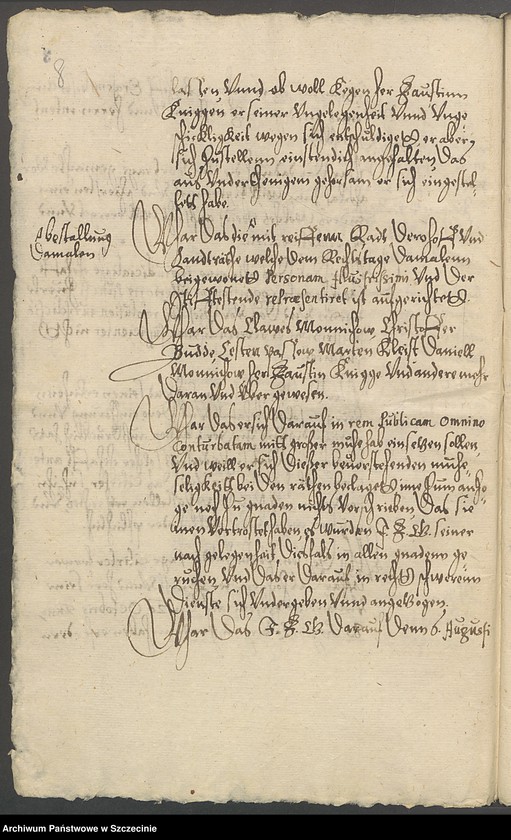 8
lassen Vnnd ob woll Kegen her Faustinn
Kniggen er seiner Vngelegenheit Vnnd Vnge
schickligkeit wegen sich entschuldiget er aber
sich Zustellenn einstendich angehalten, das
aus Vnderthenigem gehorsam er sich eingestel-
let habe.
bestallung
damalen
War das die mit reiffem Rads der hof Vnd
Landträthe welche dem Rechtstage damalenn
beigewonet Personam Illustrissimi Vnd der
Stifftestende repraesentiret ist aufgerichtet.
War das Clawes Monnichow, Christoffer
Budde Marten Kleist Daniell
Monnichow her Faustin Knigge Vnd andere mehr
daran Vnd Vber gewesen.
War das er sich darauf in rem publicam omnino
Conturbatam mitt groser muhe hab einsetzen sollen,
Vnd weill er sich dieser beuorstehenden muhe
seligkeitt bei den räthen beclaget ime zum anzo
ge noch Zu gnaden nichts Vorschrieben das sie
inen Vertröstet haben es wurden I. F. G. seiner
nach gelegenheit diesfals in allen gnaden ge
ruhen Vnd das er darauf in recht schwerenn
dienste sich Vndergeben Vnnd angezogen.
War das I. F. G. darauf denn 6. Augusti
Archiwum Państwowe w Szczecinie